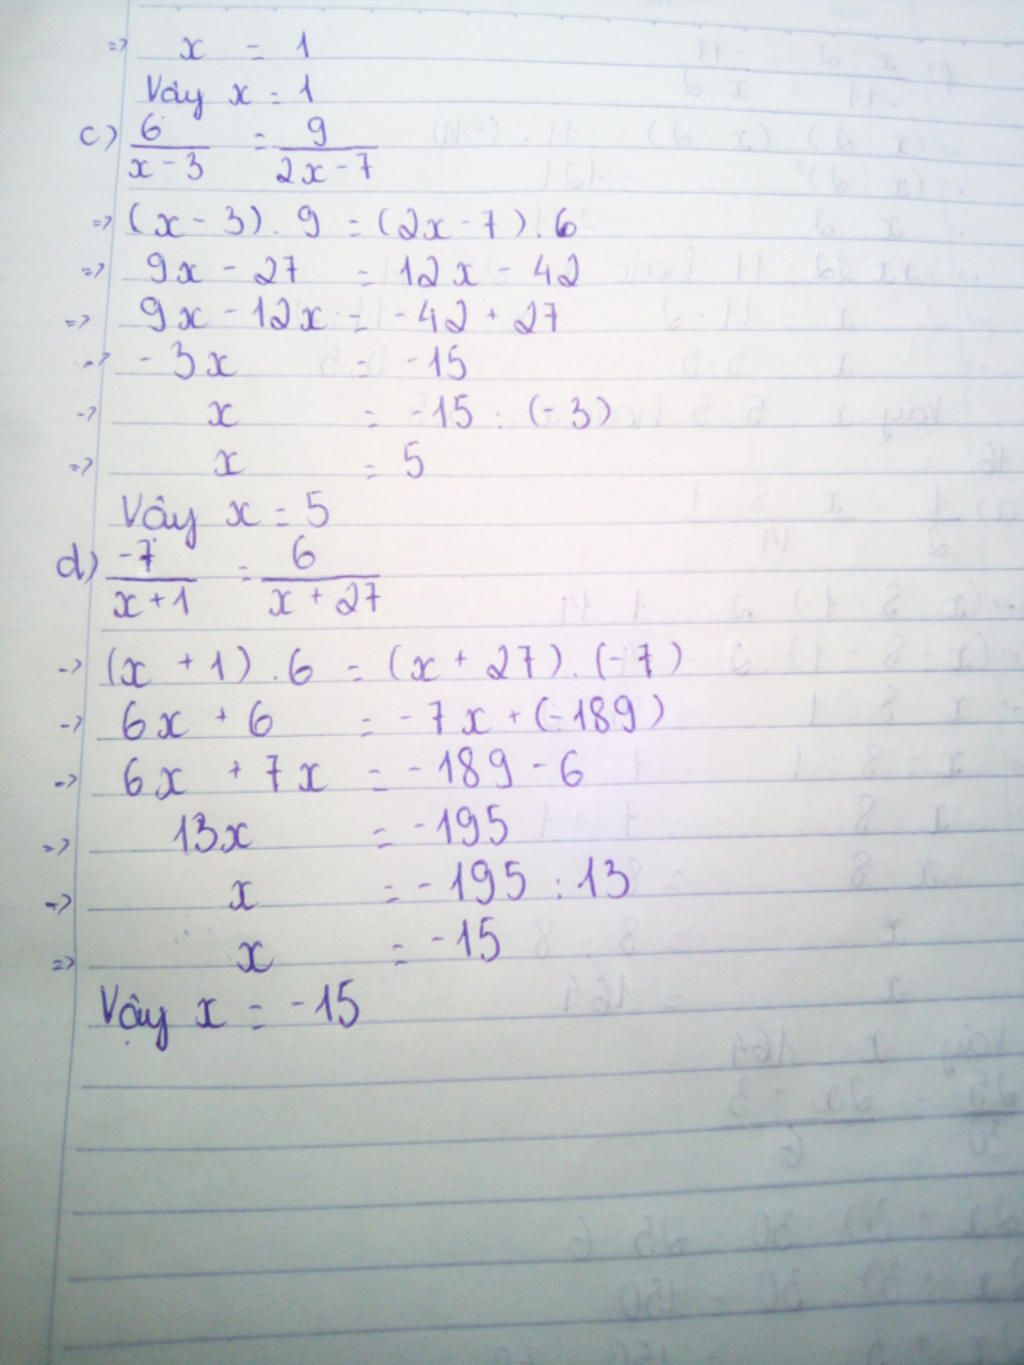 => x = 1
Vậy x = 1
c) 6/(x - 3) = 9/(2x - 7)
=> (x - 3) . 9 = (2x - 7) . 6
=> 9x - 27 = 12x - 42
=> 9x - 12x = -42 + 27
=> -3x = -15
=> x = -15 : (-3)
=> x = 5
Vậy x = 5
d) -7/(x + 1) = 6/(x + 27)
=> (x + 1) . 6 = (x + 27) . (-7)
=> 6x + 6 = -7x + (-189)
=> 6x + 7x = -189 - 6
=> 13x = -195
=> x = -195 : 13
=> x = -15
Vậy x = -15